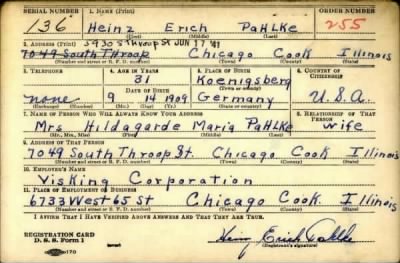 SERIAL NUMBER 1. NAME (Print) ORDER NUMBER
136 Heinz Erich PaHLKe 255
(First) (Middle) (Last)
2. ADDRESS (Print) 5930 S Throop St JUN 17 '41
7049 South Throop Chicago Cook Illinois
(Number and street or R. F. D. number) (Town) (County) (State)
3. TELEPHONE 4. AGE IN YEARS 5. PLACE OF BIRTH 6. COUNTRY OF CITIZENSHIP
31 Koenigsberg
DATE OF BIRTH (Town or county)
none 9 14 1909 Germany U.S.A.
(Exchange) (Number) (Mo.) (Day) (Yr.) (State or country)
7. NAME OF PERSON WHO WILL ALWAYS KNOW YOUR ADDRESS 8. RELATIONSHIP OF THAT PERSON
Mrs Hildagarde Maria PaHLKe wife
(Mr., Mrs., Miss) (First) (Middle) (Last)
9. ADDRESS OF THAT PERSON
7049 South Throop St. Chicago Cook Illinois
(Number and street or R. F. D. number) (Town) (County) (State)
10. EMPLOYER'S NAME
VisKing Corporation
11. PLACE OF EMPLOYMENT OR BUSINESS
6733 West 65 St Chicago Cook Illinois
(Number and street or R. F. D. number) (Town) (County) (State)
I AFFIRM THAT I HAVE VERIFIED ABOVE ANSWERS AND THAT THEY ARE TRUE.
REGISTRATION CARD
D. S. S. Form 1 Heinz Erich Pahlke
(Registrant's signature)